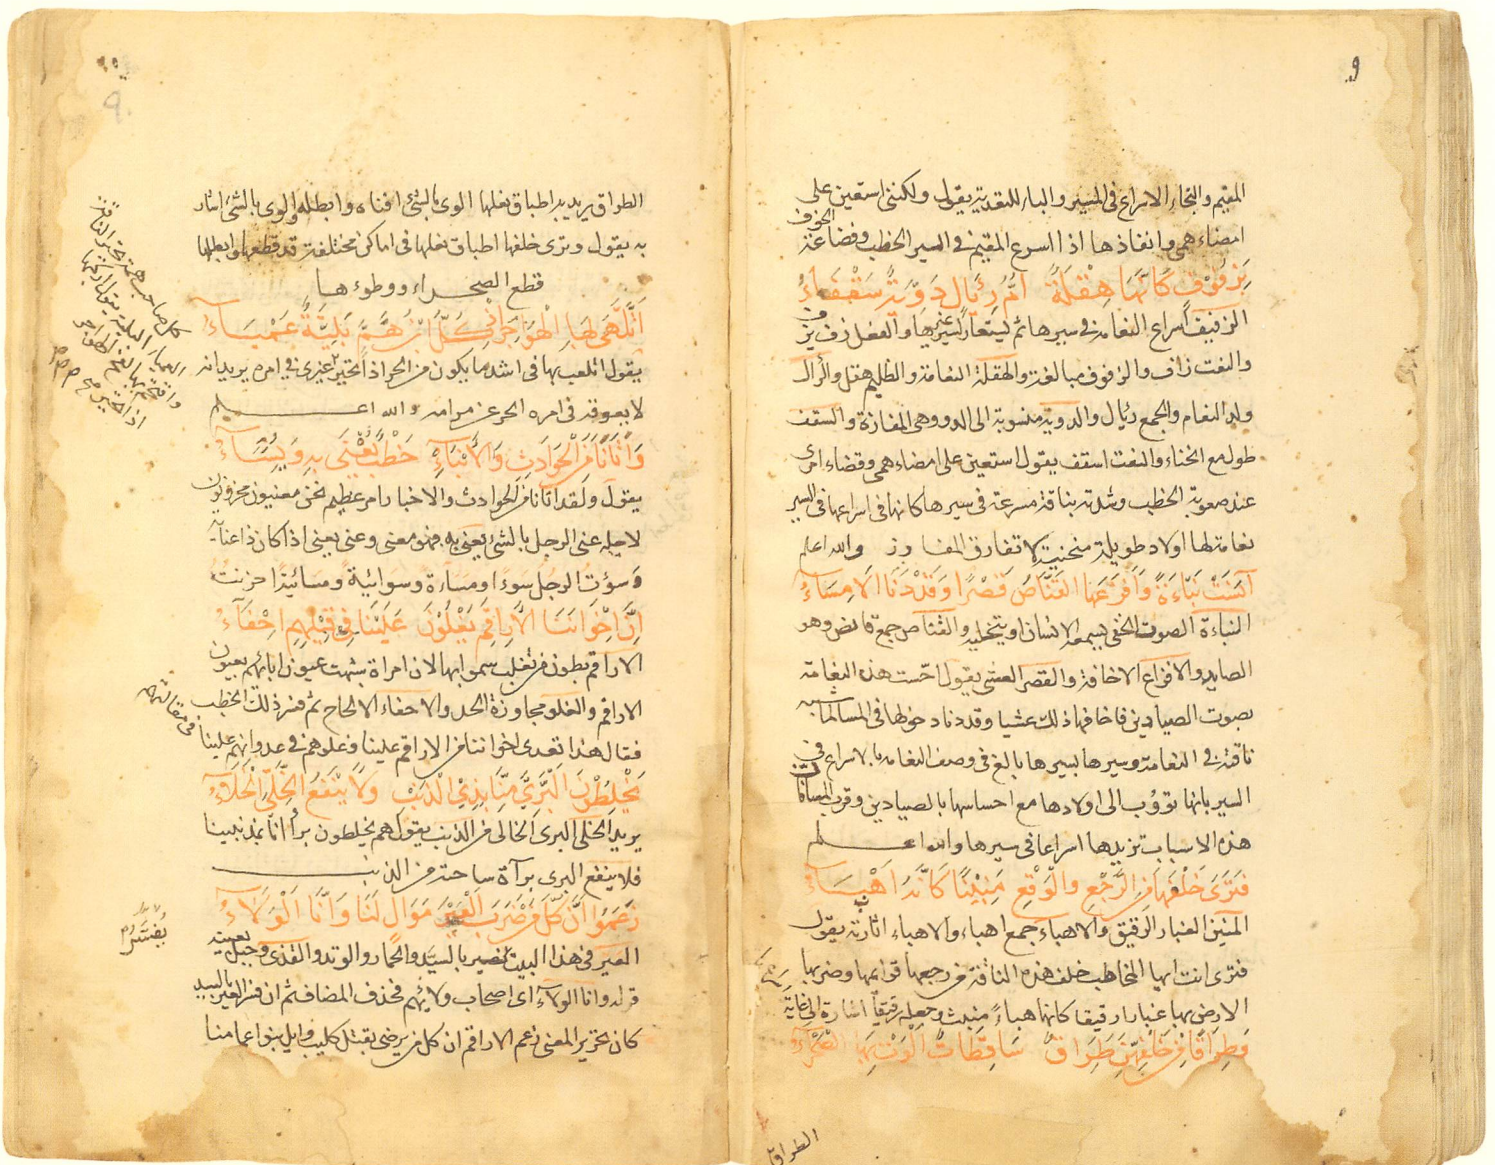 و
المقيم والنجاء الاسراع فى المسير والباء للتعدية يقول ولكننى استعين على
امضاء همى وانفاذها اذا اسرع المقيم فى السير الخطب وفضاعة
الخوف
بِزَفُوْفٍ كَاَنَّهَا هِقْلَةٌ اُمُّ رِئَالٍ دَوِّيَّةٌ سَقْفَاءُ
الزفيف اسراع النعامة فى سيرها ثم يستعار لسير غيرها والفعل زف يزف
والنعت زاف والزفوف مبالغة والهقلة النعامة والظليم هقل والرأل
ولد النعام والجمع رئال والدوية منسوبة الى الدو وهى المفازة والسقف
طول مع انحناء والنعت اسقف يقول استعين على امضاء همى وقضاء امرى
عند صعوبة الخطب وشدته بناقة مسرعة فى سيرها كانها فى اسراعها فى السير
نعامة لها اولاد طويلة منحنية لا تفارق المفاوز والله اعلم
آنَسَتْ نَبْاَةً وَاَفْزَعَهَا الْقَنَّاصُ قَصْرًا وَقَدْ دَنَا الْاِمْسَاءُ
النبأة الصوت الخفى يسمعه الانسان او يتخيله والقناص جمع قانص وهو
الصايد والافزاع الاخافة والقصر العشى يقول احست هذه النعامة
بصوت الصيادين فاخافها ذلك عشيا وقد دنا دخولها فى المسا لما شبه
ناقته فى النعامة وسيرها بسيرها بالغ فى وصف النعامة بالاسراع فى
السير بانها تؤوب الى اولادها مع احساسها بالصيادين وقرب المسا فان
هذه الاسباب تزيدها اسراعا فى سيرها والله اعلم
فَتَرَى خَلْفَهَا مِنَ الرَّجْعِ وَالْوَقْعِ مَنِيْنًا كَاَنَّهُ اَهْبَاءُ
المنين الغبار الرقيق والاهباء جمع اهباء والاهباء اثارته يقول
فترى انت ايها المخاطب خلف هذه الناقة من رجعها قوائمها وضربها
الارض بها غبارا رقيقا كانها هباء منبث وجعله رقيقا اشارة الى غاية
وَطِرَاقًا مِنْ خَلْفِهِنَّ طِرَاقٌ سَاقِطَاتٌ اَلْوَتْ بِهَا الصَّحْرَاءُ
الطراق
الطراق يريد اطباق نعلها الوى بالشئ افناه وابطله والوى بالشئ اشار
به يقول وترى خلفها اطباق نعلها فى اماكن مختلفة قد قطعها وابطلها
قطع الصحراء ووطوءها
اَتَلَهَّى بِهَا الْهَوَاجِرَ اِذْ كُلُّ ابْنِ هَمٍّ بَلِيَّةٌ عَمْيَاءُ
يقول اتلعب بها فى اشد ما يكون من الحر اذا تحير غيرى فى امره يريد انه
لا يعوقه فى امره الحر عن مرامه والله اعلم
وَاَتَانَا مِنَ الْحَوَادِثِ وَالْاَنْبَاءِ خَطْبٌ نُعْنَى بِهِ وَنُسَاءُ
يقول ولقد اتانا من الحوادث والاخبار امر عظيم نحن معنيون محزونون
لاجله عنى الرجل بالشئ يعنى به فهو معنى وعنى يعنى اذا كان ذا عناء
وسؤت الرجل سوءا ومساءة وسوائية ومسائية احزنته
اِنَّ اِخْوَانَنَا الْاَرَاقِمَ يَغْلُوْنَ عَلَيْنَا فِى قِيْلِهِمْ اِحْفَاءُ
الاراقم بطون من تغلب سموا بها لان امراة شبهت عيون ابائهم بعيون
الاراقم والغلو مجاوزة الحد والاحفاء الالحاح ثم فسر ذلك الخطب
فقال هذا تعدى اخواننا من الاراقم علينا وغلوهم فى عدوانهم علينا
فى مقالتهم
يَخْلِطُوْنَ الْبَرِىَّ مِنَّا بِذِى الذَّنْبِ وَلَا يَنْفَعُ الْخَلِىَّ الْخَلَاءُ
يريد الخلى البرى الخالى من الذنب يقول هم يخلطون برأانا بمذنبينا
فلا ينفع البرى برآة ساحته من الذنب
زَعَمُوْا اَنَّ كُلَّ مَنْ ضَرَبَ الْعَيْرَ مَوَالٍ لَنَا وَاَنَّا الْوَلَاءُ
العير فى هذا البيت يفسر بالسيد والحمار والوتد والقذى وجبل بعينه
قوله وانا الولاء اى اصحاب ولائهم فحذف المضاف ثم ان فسر العير بالسيد
كان تحرير المعنى زعم الاراقم ان كل من يرضى بقتل كليب وايل بنو اعمامنا